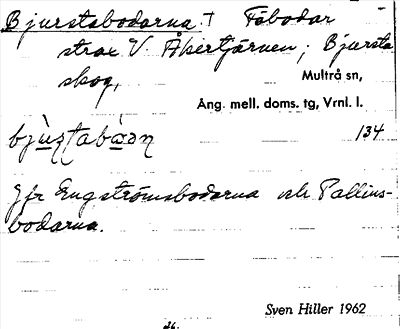 Bjurstabodarna † Fäbodar
strax V. Åkertjärnen; Bjursta
skog,
Multrå sn,
Ång. mell. doms. tg, Vrnl. l.
134
Jfr Engströmsbodarna och Pallins-
bodarna.
Sven Hiller 1962
26.